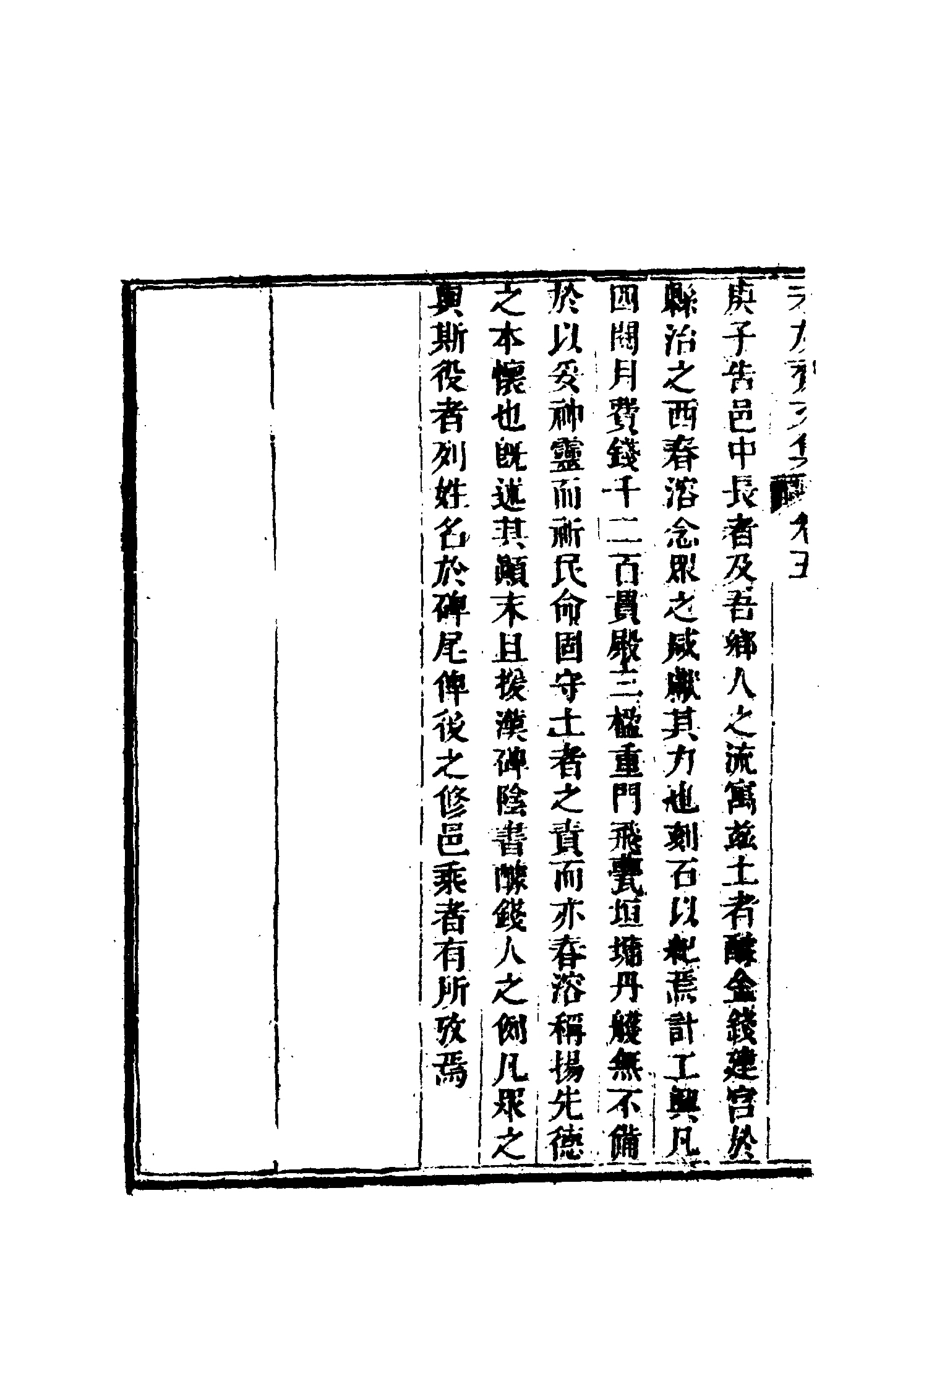 文集卷五
庚子告邑中長者及吾鄉人之流寓茲土者醵金錢建宮於
縣治之西春溶念眾之咸獻其力也刻石以紀焉計工興凡
四閱月費錢千二百貫殿三楹重門飛甍垣墉丹艧無不備
於以妥神靈而祈民命固守土者之責而亦春溶稱揚先德
之本懷也旣述其顛末且援漢碑陰書醵錢人之例凡眾之
與斯役者列姓名於碑尾俾後之修邑乘者有所攷焉